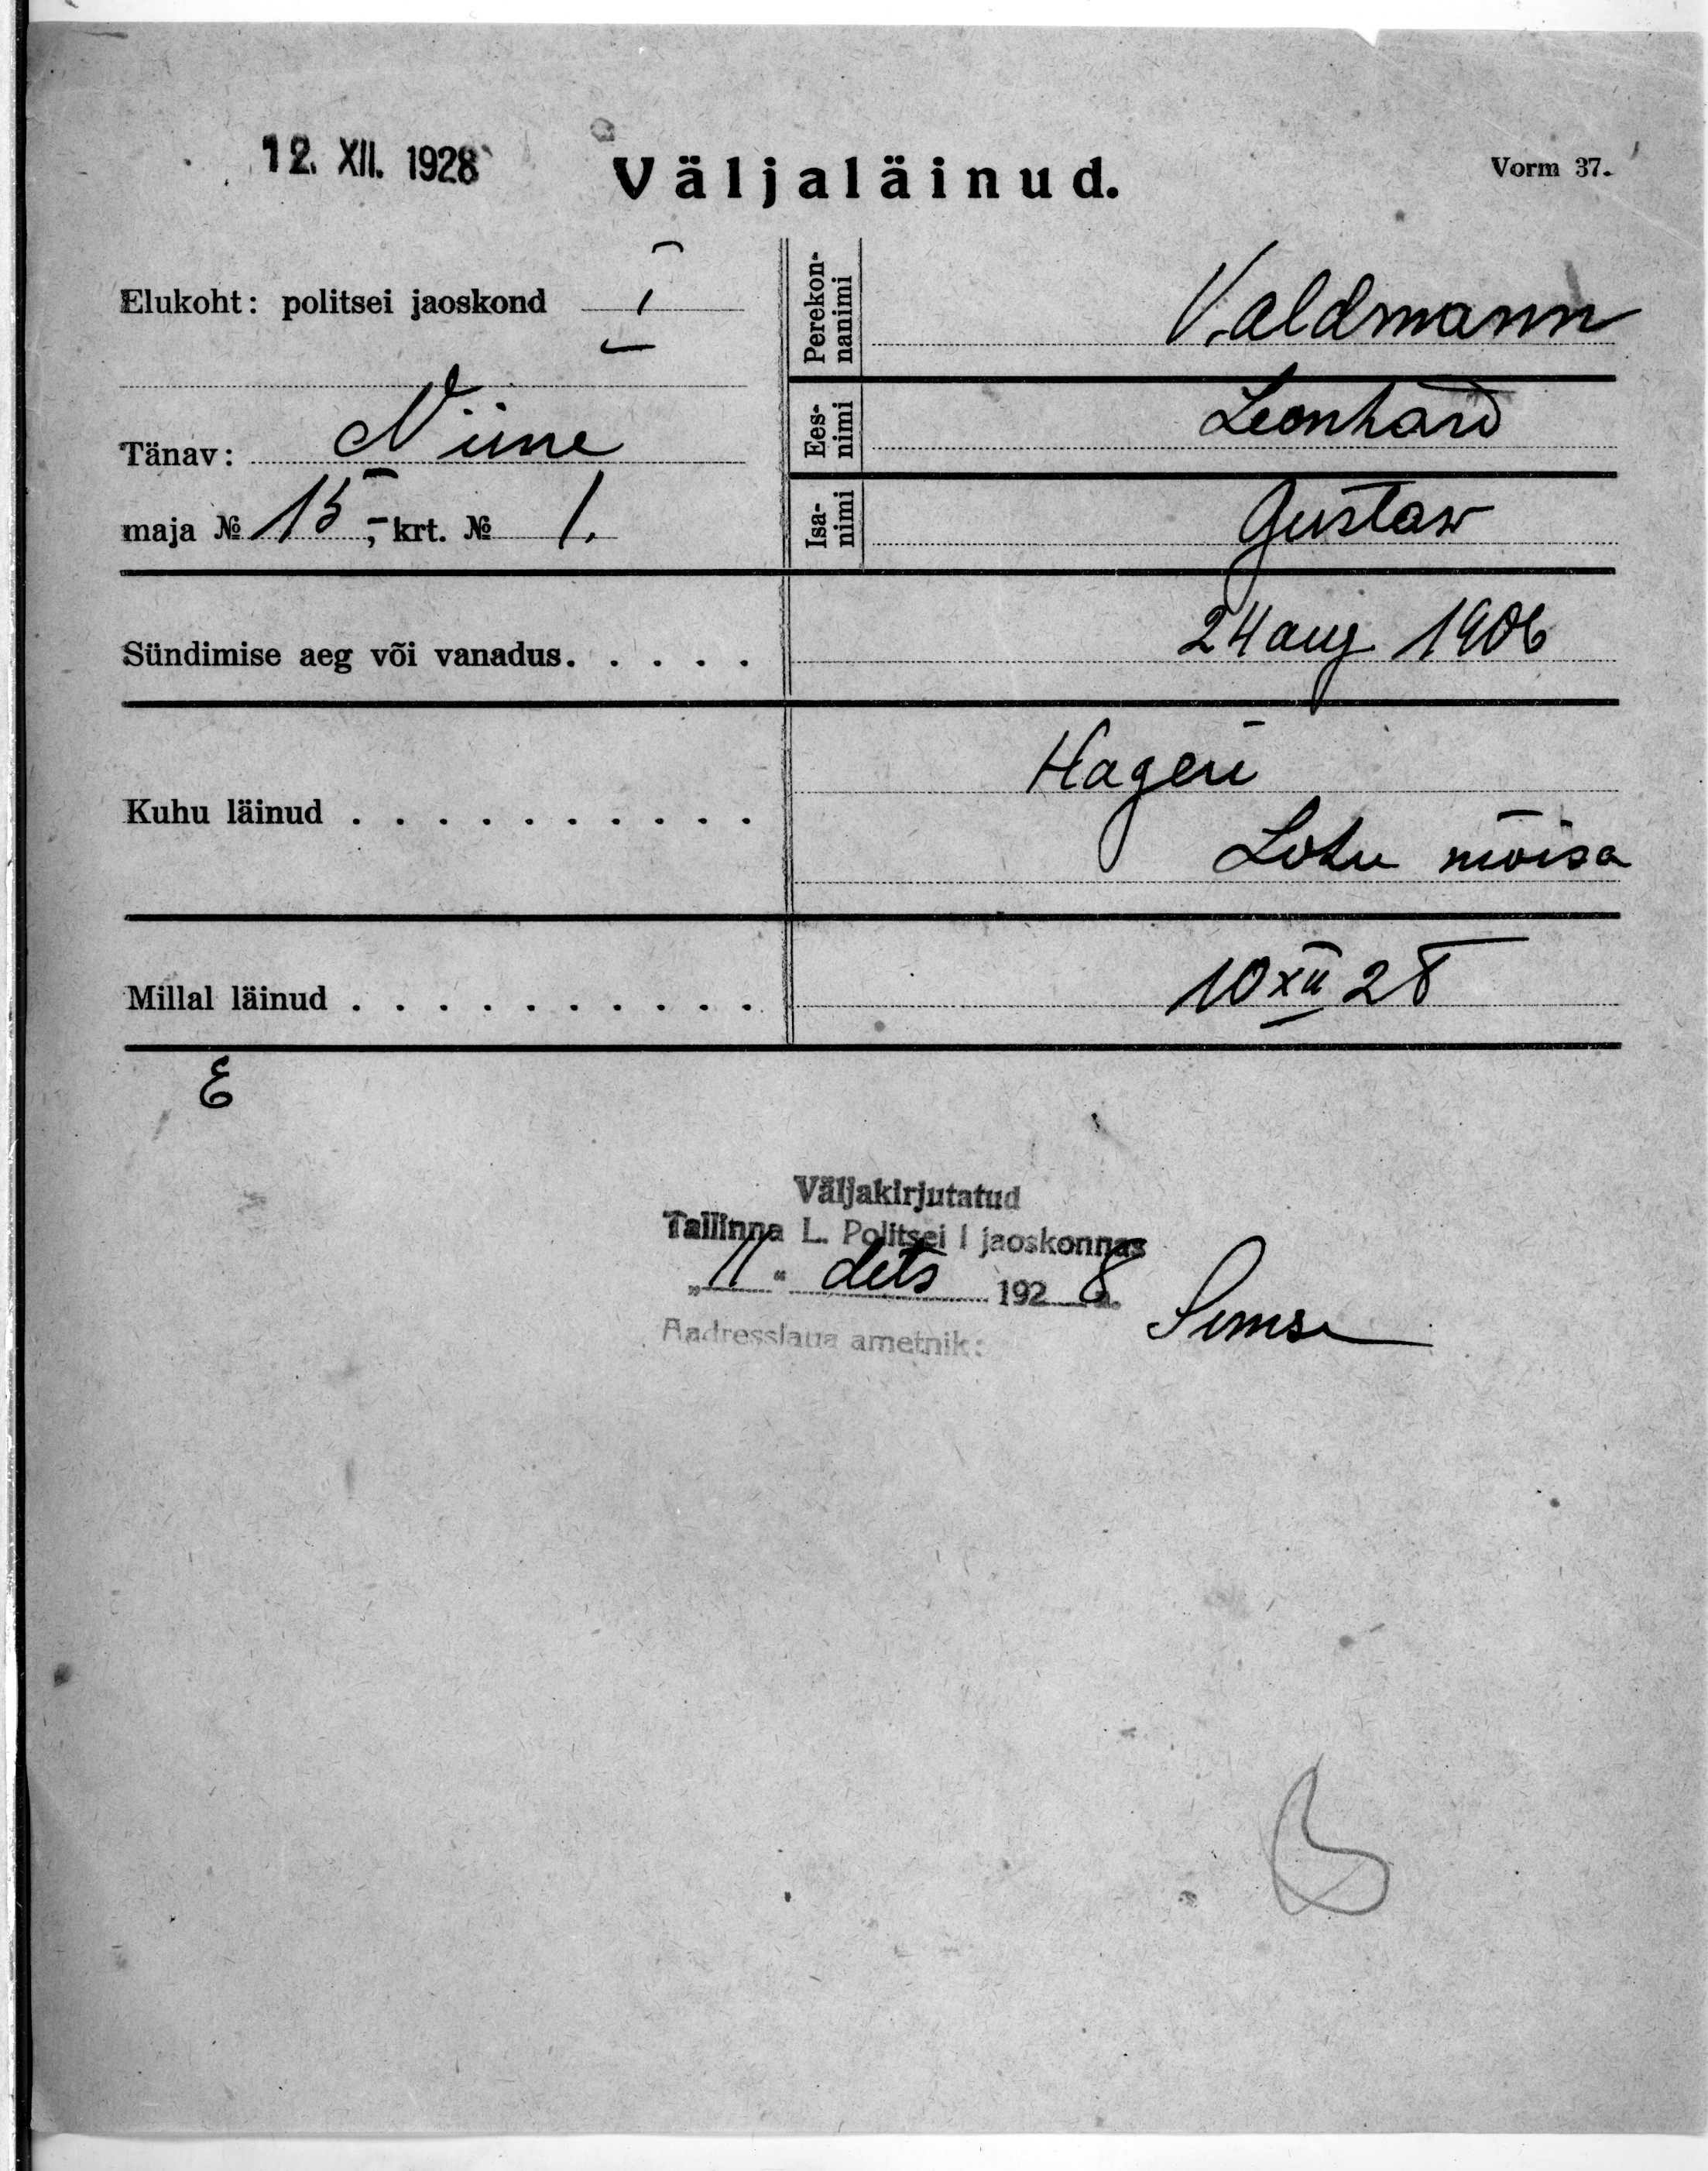 12. XII. 1928
Väljaläinud.
Vorm 37.
Elukoht: politsei jaoskond I
Tänav: Niine
maja № 15, krt. № 1.
Perekon-
nanimi
Valdmann
Ees-
nimi
Leonhard
Isa-
nimi
Gustaw
Sündimise aeg või vanadus. . . . .
24 aug 1906
Kuhu läinud . . . . . . . . . .
Hageri
Lohu mõisa
Millal läinud . . . . . . . . . .
10 XII 28
E
Väljakirjutatud
Tallinna L. Politsei I jaoskonnas
„11“ dets 1928 a.
Aadresslaua ametnik: